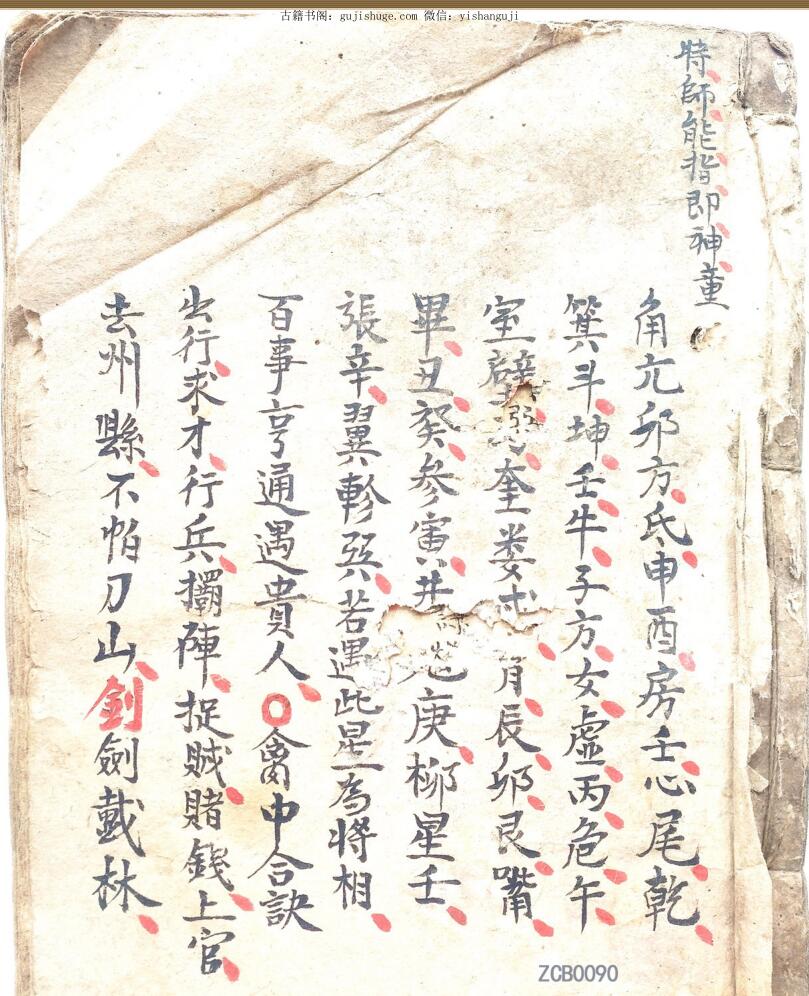 古籍书阁：gujishuge.com 微信：yishanguji
特師能指即神童
角亢卯方氐申酉房壬心尾乾
箕斗坤壬牛子方女虛丙危午
室壁奎婁
角辰卯艮嘴
畢丑癸參寅井
庚柳星壬
張辛翼軫巽若遇此星為將相
百事亨通遇貴人〇禽中合訣
出行求才行兵擺陣捉賊賭錢上官
去州縣不怕刀山劍劍戴林
ZCB0090